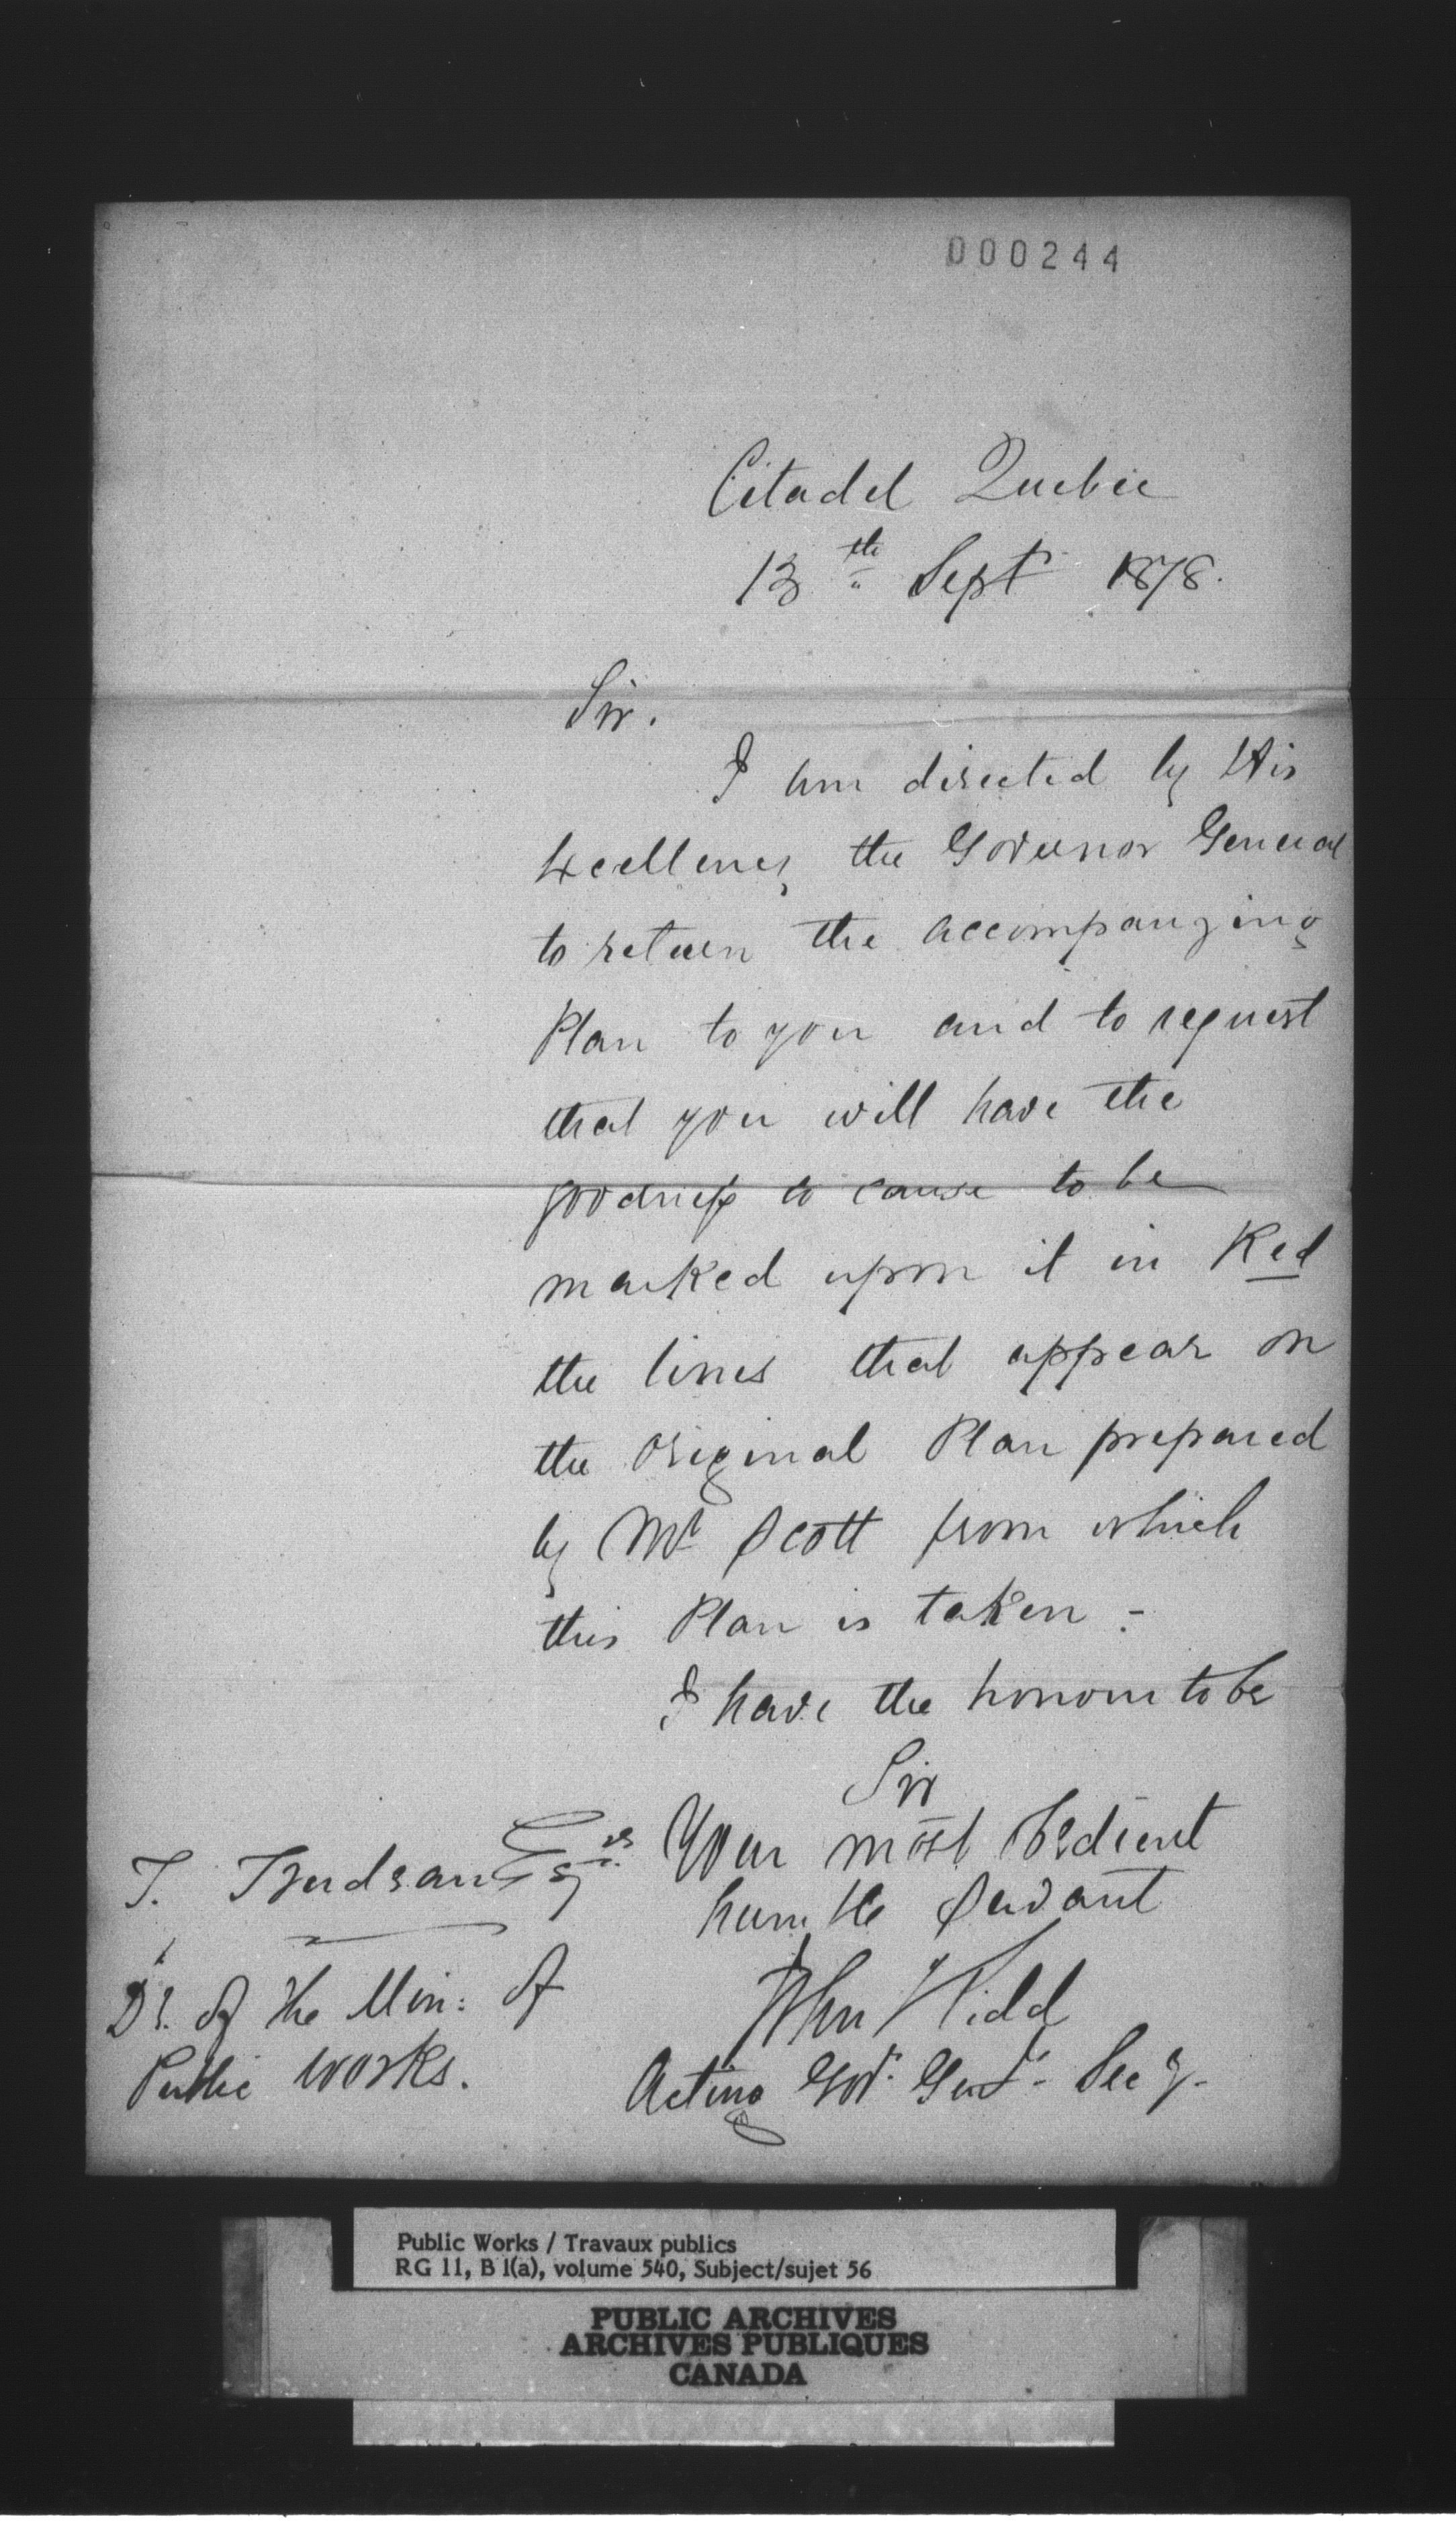 000244
Citadel Quebec
13th Sept 1878.
Sir.
I am directed by His
Excellency the Governor General
to return the accompanying
Plan to you and to request
that you will have the
goodness to cause to be
marked upon it in Red
the lines that appear on
the Original Plan prepared
by Mr Scott from which
this Plan is taken -
I have the honour to be
Sir
Your most obedient
humble Servant
John Kidd
Acting Govr. Genl. Secy.
T. Trudeau Esqre
Dy. of the Min: of
Public Works.
Public Works / Travaux publics
RG 11, B 1(a), volume 540, Subject/sujet 56
PUBLIC ARCHIVES
ARCHIVES PUBLIQUES
CANADA